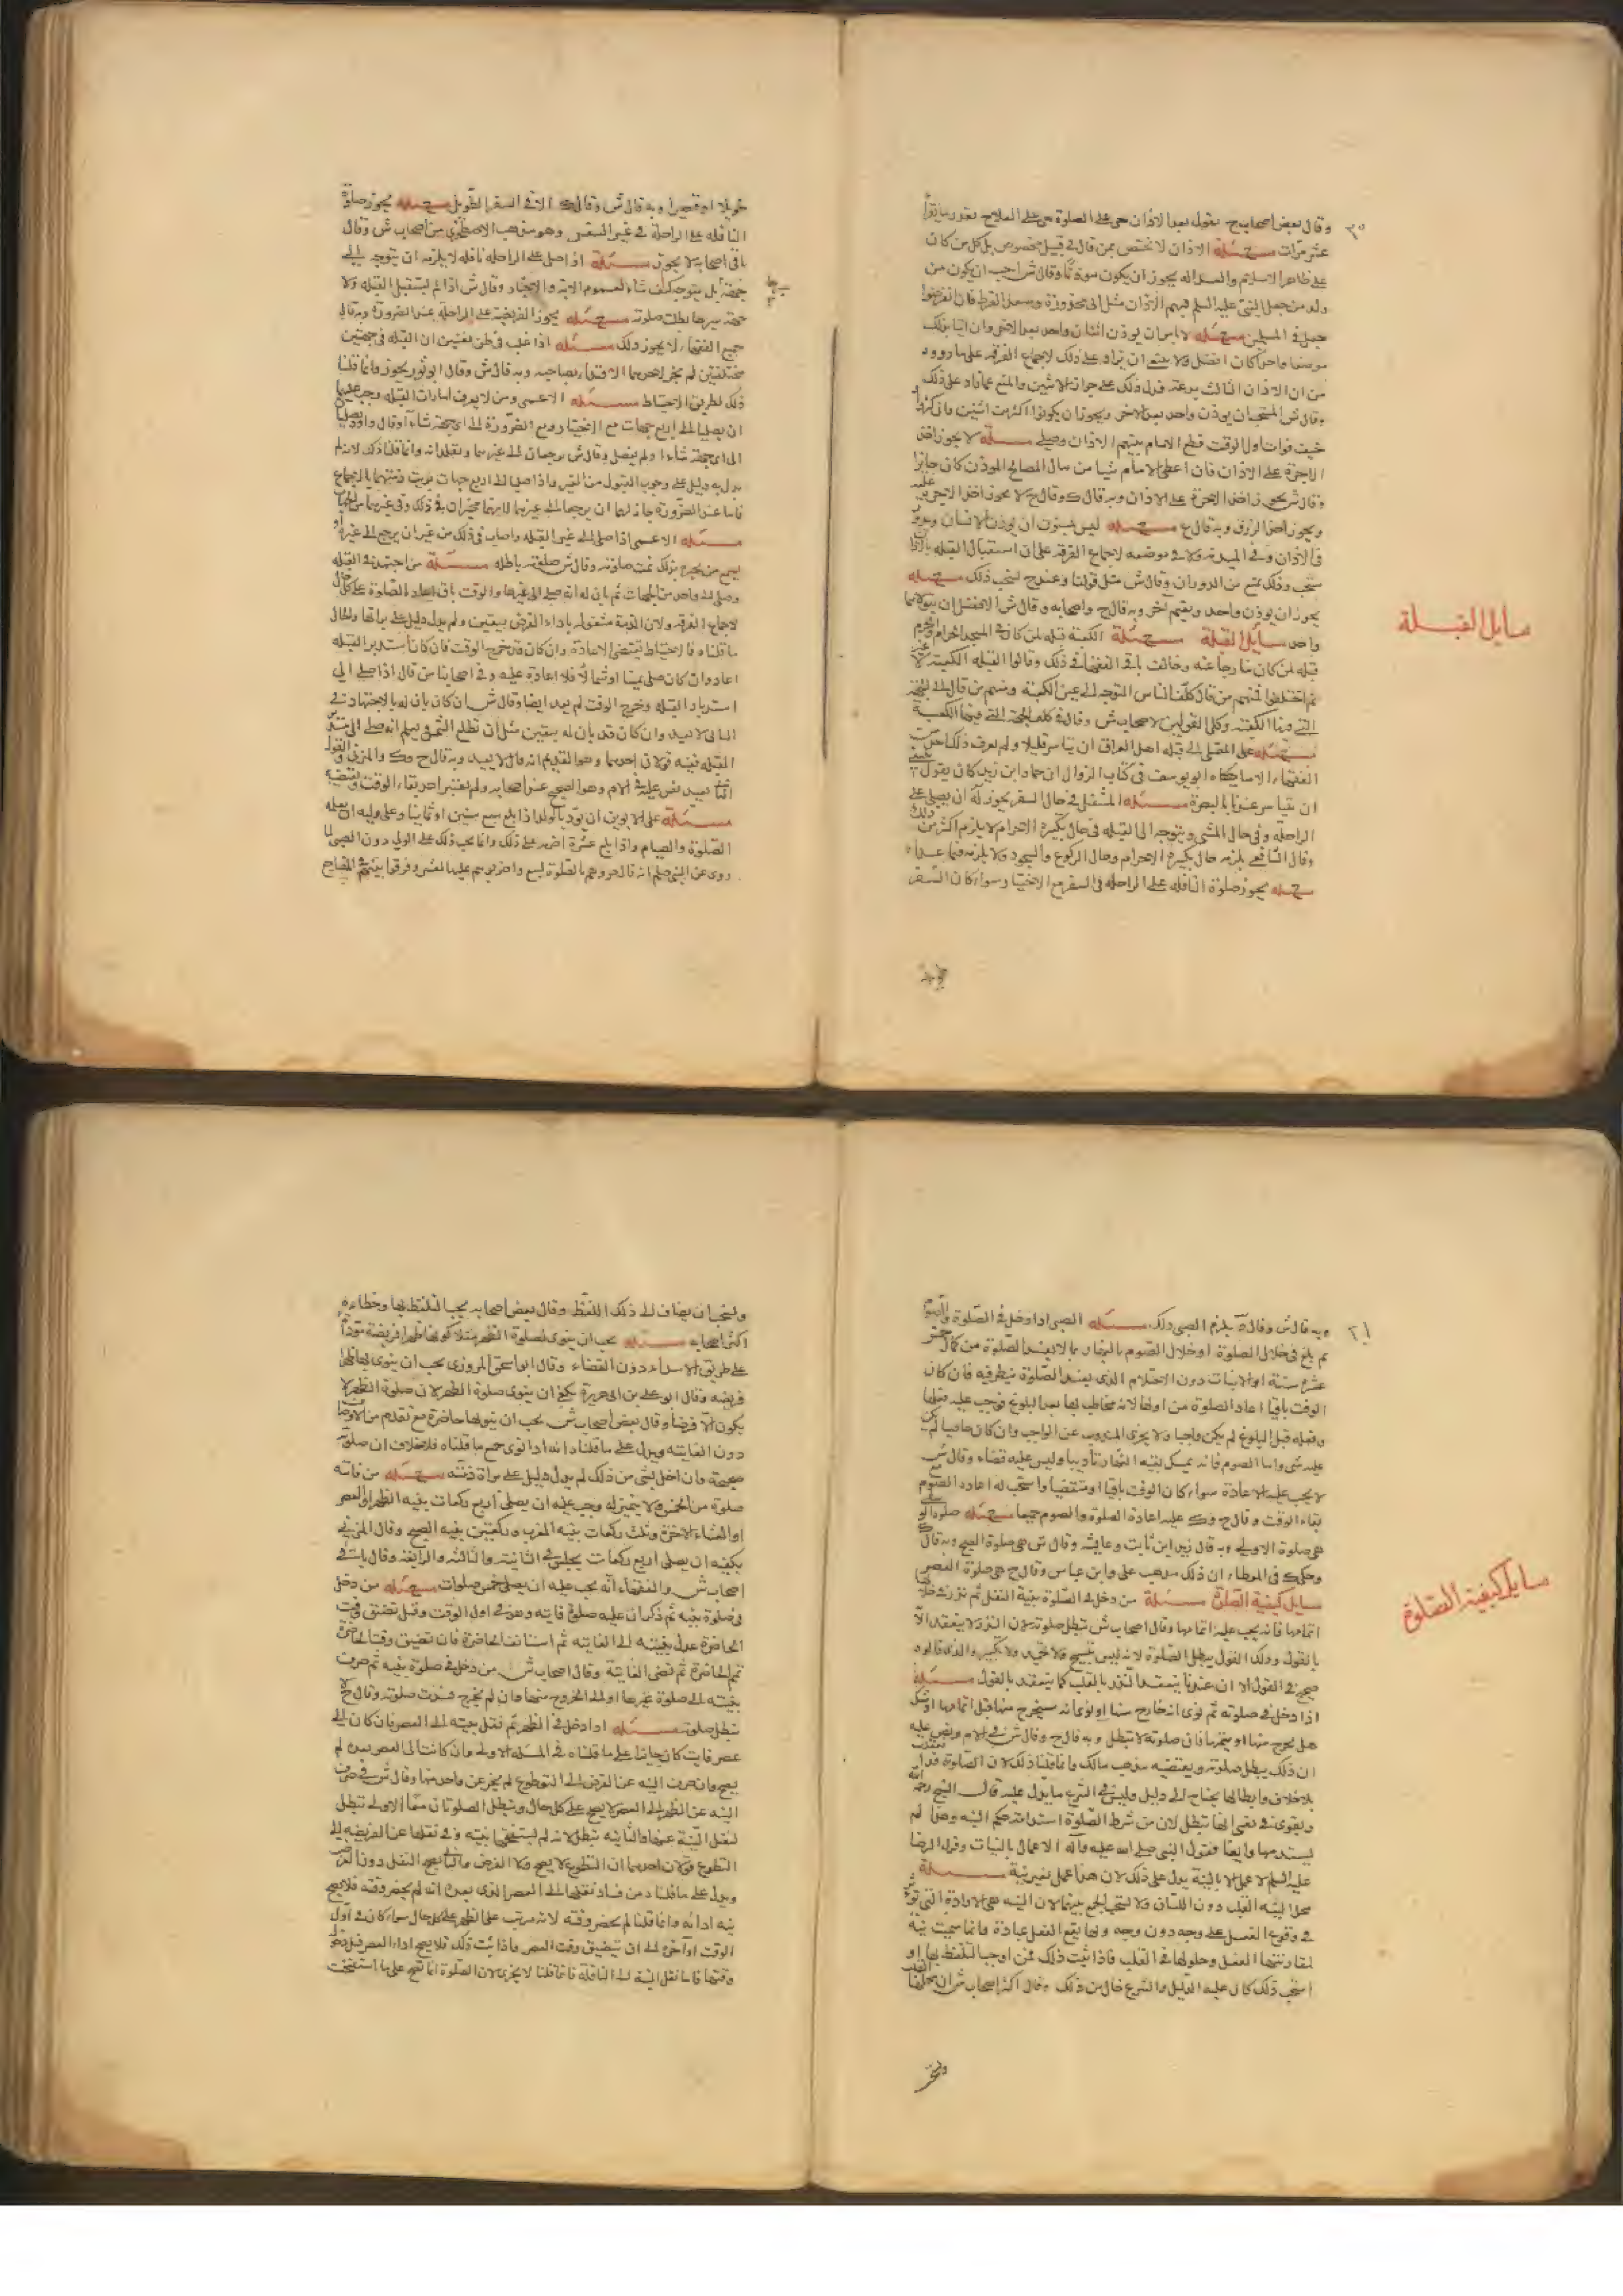 وقال بعض اصحاب ح يقول بعد الاذان حي على الصلوة حي على الفلاح بقدر ما يقرأ
عشر مرات مسئله الاذان لا يختص بمن قال في قبيل مخصوص بل كل من كان
على ظاهر الاسلام والعداله يجوز ان يكون موذنا وقال ش احب ان يكون من
ولد من جعل النبي عليه السلم فيهم الاذان مثل ابي محذورة وسعد القرظ فان انقرضوا
جعل في المسلمين مسئله لا باس ان يوذن اثنان واحد بعد الاخر وان اتيا بذلك
موضعا واحدا كان افضل ولا ينبغي ان يزاد على ذلك لاجماع الفرقه على ما رووه
من ان الاذان الثالث بدعة فدل ذلك على جواز الاثنين والمنع عما زاد على ذلك
وقال ش المستحب ان يوذن واحد بعد الاخر ويجوز ان يكونوا اكثر من اثنين فان كثروا
خيف فوات اول الوقت قطع الامام بينهم الاذان وصلى مسئله لا يجوز اخذ
الاجرة على الاذان فان اعطى الامام شيا من مال المصالح الموذن كان جايزا
وقال ش يجوز اخذ الاجرة على الاذان وبه قال ك وقال ح لا يجوز اخذ الاجرة عليه
ويجوز اخذ الرزق وبه قال ع مسئله ليس بمسنون ان يوذن الانسان ويدور
في الاذان وفي الميذنة ولا في موضعه لاجماع الفرقه على ان استقبال القبله بالاذان
مستحب وذلك يمنع من الدوران وقال ش مثل قولنا وعند ح يستحب ذلك مسئله
يجوز ان يوذن واحد ويقيم اخر وبه قال ح واصحابه وقال ش الافضل ان يتولاهما
واحد مسايل القبلة مسئلة الكعبة قبلة لمن كان في المسجد الحرام والحرم
قبله لمن كان خارجا عنه وخالف باقي الفقهاء في ذلك وقالوا القبله الكعبة لا غير
ثم اختلفوا فمنهم من قال كلف الناس التوجه الى عين الكعبة ومنهم من قال الى الجهة
التي فيها الكعبة وكلى القولين لاصحاب ش وقال ح كلف الجهة التي فيها الكعبة
مسئله على المصلي الى قبله اهل العراق ان يتياسر قليلا ولم يعرف ذلك احد من
الفقهاء الا ما حكاه ابو يوسف في كتاب الزوال ان حماد ابن زيد كان يقول ينبغي
ان يتياسر عندنا بالبصرة مسئله المتنفل في حال السفر يجوز له ان يصلي على
الراحلة وفي حال المشي ويتوجه الى القبله في حال تكبيرة الاحرام لا يلزم اكثر من ذلك
وقال الشافعي يلزمه حال تكبيرة الاحرام وحال الركوع والسجود ولا يلزمه فيما عداه
مسئله يجوز صلوة النافله على الراحله في السفر مع الاختيار سواء كان السفر
مسايل القبلة
طويلا او قصيرا وبه قال ش وقال ك الا في السفر الطويل مسئله يجوز صلوة
النافله على الراحلة في غير السفر وهو مذهب الاصطخري من اصحاب ش وقال
باقي اصحابه لا يجوز مسئلة اذا صلى على الراحله نافله لا يلزمه ان يتوجه الى
جهة بل يتوجه كيف شاء لعموم الاية والاخبار وقال ش اذا لم يستقبل القبله ولا
جهة سيرها بطلت صلوته مسئله يجوز الفريضة على الراحلة عند الضرورة وقال
جميع الفقهاء لا يجوز ذلك مسئله اذا غلب في ظن نفسين ان القبله في جهتين
مختلفتين لم يجز لاحدهما الاقتداء بصاحبه وبه قال ش وقال ابو ثور يجوز وانما قلنا
ذلك لطريق الاحتياط مسئله الاعمى ومن لا يعرف امارات القبله وجب عليهما
ان يصليا الى اربع جهات مع الاختيار ومع الضرورة الى اي جهة شاءا وقال داود يصليا
الى اي جهة شاءا ولم يفصل وقال ش يرجعان الى غيرهما ويقلدانه وانما قلنا ذلك لانه لم
يدل دليل على وجوب القبول من الغير واذا صليا الى اربع جهات برئت ذمتهما بالاجماع
فاما عند الضرورة جاز لهما ان يرجعا الى غيرهما لانهما مخيران في ذلك وفي غيرها من الجهات
مسئله الاعمى اذا صلى الى غير القبله واصاب في ذلك من غير ان يرجع الى غيره او
يسمع من يخبره بذلك تمت صلوته وقال ش صلوته باطله مسئلة من اجتهد في القبله
وصلى الى واحد من الجهات ثم بان له انه صلى الى غيرها والوقت باق اعاد الصلوة على كل حال
لاجماع الفرقه ولان الذمة مشغوله باداء الفرض بيقين ولم يدل دليل على برائتها والحال
ما قلناه فالاحتياط يقتضي الاعادة وان كان قد خرج الوقت فان كان استدبر القبله
اعاد وان كان صلى يمينا او شمالا فلا اعادة عليه وفي اصحابنا من قال اذا صلى الى
استدبار القبله وخرج الوقت لم يعد ايضا وقال ش ان كان بان له بالاجتهاد
الثاني لا يعيد وان كان قد بان له بيقين مثل ان تطلع الشمس ويعلم انه صلى الى مستدبر
القبله فيه قولان احدهما وهو القديم انه قال لا يعيد وبه قال ح وك والمزني والقول
الثاني يعيد نص عليه في الام وهو الصحيح عند اصحابه ولم يعتبر احد بقاء الوقت وتقضيه
مسئله على الابوين ان يؤدبا الولد اذا بلغ سبع سنين او ثمانيا وعلى وليه ان يعلمه
الصلوة والصيام واذا بلغ عشرة اضربه على ذلك وانما يجب ذلك على الولي دون الصبي لما
روي عن النبي صلم انه قال مروهم بالصلوة لسبع واضربوهم عليها لعشر وفرقوا بينهم في المضاجع
وبه قال ش وقال ة يلزم الصبي ذلك مسئله الصبي اذا دخل في الصلوة والصوم
ثم بلغ في خلال الصلوة او خلال الصوم بالنهار بما لا يفسد الصلوة من كمال خمس
عشرة سنة او الانبات دون الاحتلام الذي يفسد الصلوة ينظر فيه فان كان
الوقت باقيا اعاد الصلوة من اولها لانه مخاطب بها بعد البلوغ فوجب عليه فعلها
وفعله قبل البلوغ لم يكن واجبا ولا يجزي المندوب عن الواجب وان كان ماضيا لم يكن
عليه شي واما الصوم فانه يمسك بقية النهار تاديبا وليس عليه قضاء وقال ش
لا يجب عليه الاعادة سواء كان الوقت باقيا او منقضيا واستحب له اعادة الصوم مع
بقاء الوقت وقال ح وك عليه اعادة الصلوة والصوم جميعا مسئله صلوة الوسطى
هي صلوة الاولى وبه قال زيد ابن ثابت وعايشه وقال ش هي صلوة الصبح وبه قال ك
وحكى في الموطاء ان ذلك مذهب علي وابن عباس وقال ح هي صلوة العصر
مسايل كيفية الصلوة مسئلة من دخل في الصلوة بنية النفل ثم نذر في خلالها
اتمامها فانه يجب عليه اتمامها وقال اصحاب ش تبطل صلوته لان النذر لا ينعقد الا
بالقول وذلك القول يبطل الصلوة لانه ليس بتسبيح ولا تحميد ولا تكبير والذي قالوه
صحيح في القول الا ان عندنا ينعقد النذر بالقلب كما ينعقد بالقول مسئله
اذا دخل في صلوته ثم نوى انه خارج منها او نوى انه سيخرج منها قبل اتمامها او شك
هل يخرج منها او يتمها فان صلوته لا تبطل وبه قال ح وقال ش في الام ونص عليه
ان ذلك يبطل صلوته ويقتضيه مذهب مالك وانما قلنا ذلك لان الصلوة قد انعقدت
بلا خلاف وابطالها يحتاج الى دليل وليس في الشرع ما يدل عليه قال الشيخ رحمه الله
ويقوى في نفسي انها تبطل لان من شرط الصلوة استدامة حكم النيه وهذا لم
يستدمها وايضا فقول النبي صلى الله عليه وآله الاعمال بالنيات وقول الرضا
عليه السلم لا عمل الا بالنية يدل على ذلك لان هذا عمل بغير نية مسئلة
محل النيه القلب دون اللسان ولا يستحب الجمع بينهما لان النيه هي الارادة التي تؤثر
في وقوع الفعل على وجه دون وجه وبها يقع الفعل عبادة وانما سميت نية
لمقارنتها الفعل وحلولها في القلب فاذا ثبت ذلك فمن اوجب التلفظ بها او
استحب ذلك كان عليه الدليل والشرع خال من ذلك وقال اكثر اصحاب ش ان محلها القلب
مسايل كيفية الصلوة
ويستحب ان يضاف الى ذلك اللفظ وقال بعض اصحابه يجب التلفظ بها وخطاءه
اكثر اصحابه مسئله يجب ان ينوي لصلوة الظهر مثلا كونها ظهرا فريضة مؤداة
على طريق الابتداء دون القضاء وقال ابو اسحق المروزي يجب ان ينوي بها ظهرا
فريضة وقال ابو علي بن ابي هريرة يكفي ان ينوي صلوة الظهر لان صلوة الظهر لا
يكون الا فرضا وقال بعض اصحاب ش يجب ان ينويها حاضرة مع ما تقدم من الاوصاف
دون الفايته ويدل على ما قلناه انه اذا نوى جميع ما قلناه فلا خلاف ان صلوته
صحيحة وان اخل بشي من ذلك لم يدل دليل على براة ذمته مسئله من فاتته
صلوة من الخمس ولا يتميز له وجب عليه ان يصلي اربع ركعات بنيه الظهر او العصر
او العشاء الاخرة وثلث ركعات بنيه المغرب وركعتين بنيه الصبح وقال المزني
يكفيه ان يصلي اربع ركعات يجلس في الثانية والثالثة والرابعة وقال باقي
اصحاب ش والفقهاء انه يجب عليه ان يصلي خمس صلوات مسئله من دخل
في صلوة بنيه ثم ذكر ان عليه صلوة فايته وهو في اول الوقت وقبل تضيق وقت
الحاضرة عدل بنيته الى الفايته ثم استانف الحاضرة فان تضيق وقت الحاضرة
تمم الحاضرة ثم قضى الفايتة وقال اصحاب ش من دخل في صلوة بنيه ثم صرف
بنيته الى صلوة غيرها او الى الخروج منها وان لم يخرج فسدت صلوته وقال ح لا
تبطل صلوته مسئله اذا دخل في الظهر ثم نقل نيته الى العصر فان كان الى
عصر فايت كان جايزا على ما قلناه في المسئله الاوله وان كانت الى العصر بعده لم
يصح وان صرف النيه عن الفرض الى التطوع لم يجز عن واحد منهما وقال ش في صرف
النيه عن الظهر الى العصر لا يصح على كل حال وتبطل الصلوتان معا الاولى تبطل
لنقل النية عنها والثانيه تبطل لانه لم يستفتح بنيته وفي نقلها عن الفريضه الى
التطوع قولان احدهما ان التطوع لا يصح ولا الفرض والثاني يصح النفل دون الفرض
ويدل على ما قلناه من فساد نقلها الى العصر الذي بعده انه لم يحضر وقته فلا يصح
نيه ادائه وانما قلنا لم يحضر وقته لانه مرتب على الظهر على كل حال سواء كان في اول
الوقت او آخره الى ان يتضيق وقت العصر فاذا ثبت ذلك فلا يصح اداء العصر قبل دخول
وقتها فاما نقل النية الى النافلة فانما قلنا لا يجزى لان الصلوة انما تصح على ما استفتحت